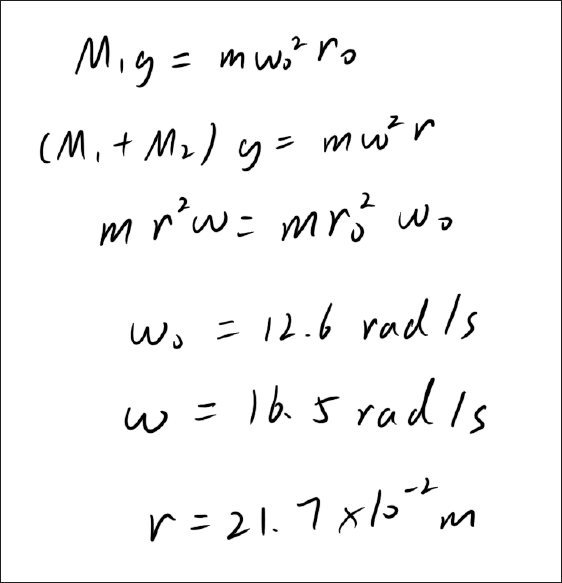 M₁g = mw₀²r₀
(M₁ + M₂) g = mw²r
m r²w = mr₀² w₀
w₀ = 12.6 rad/s
w = 16.5 rad/s
r = 21.7 ×10⁻² m